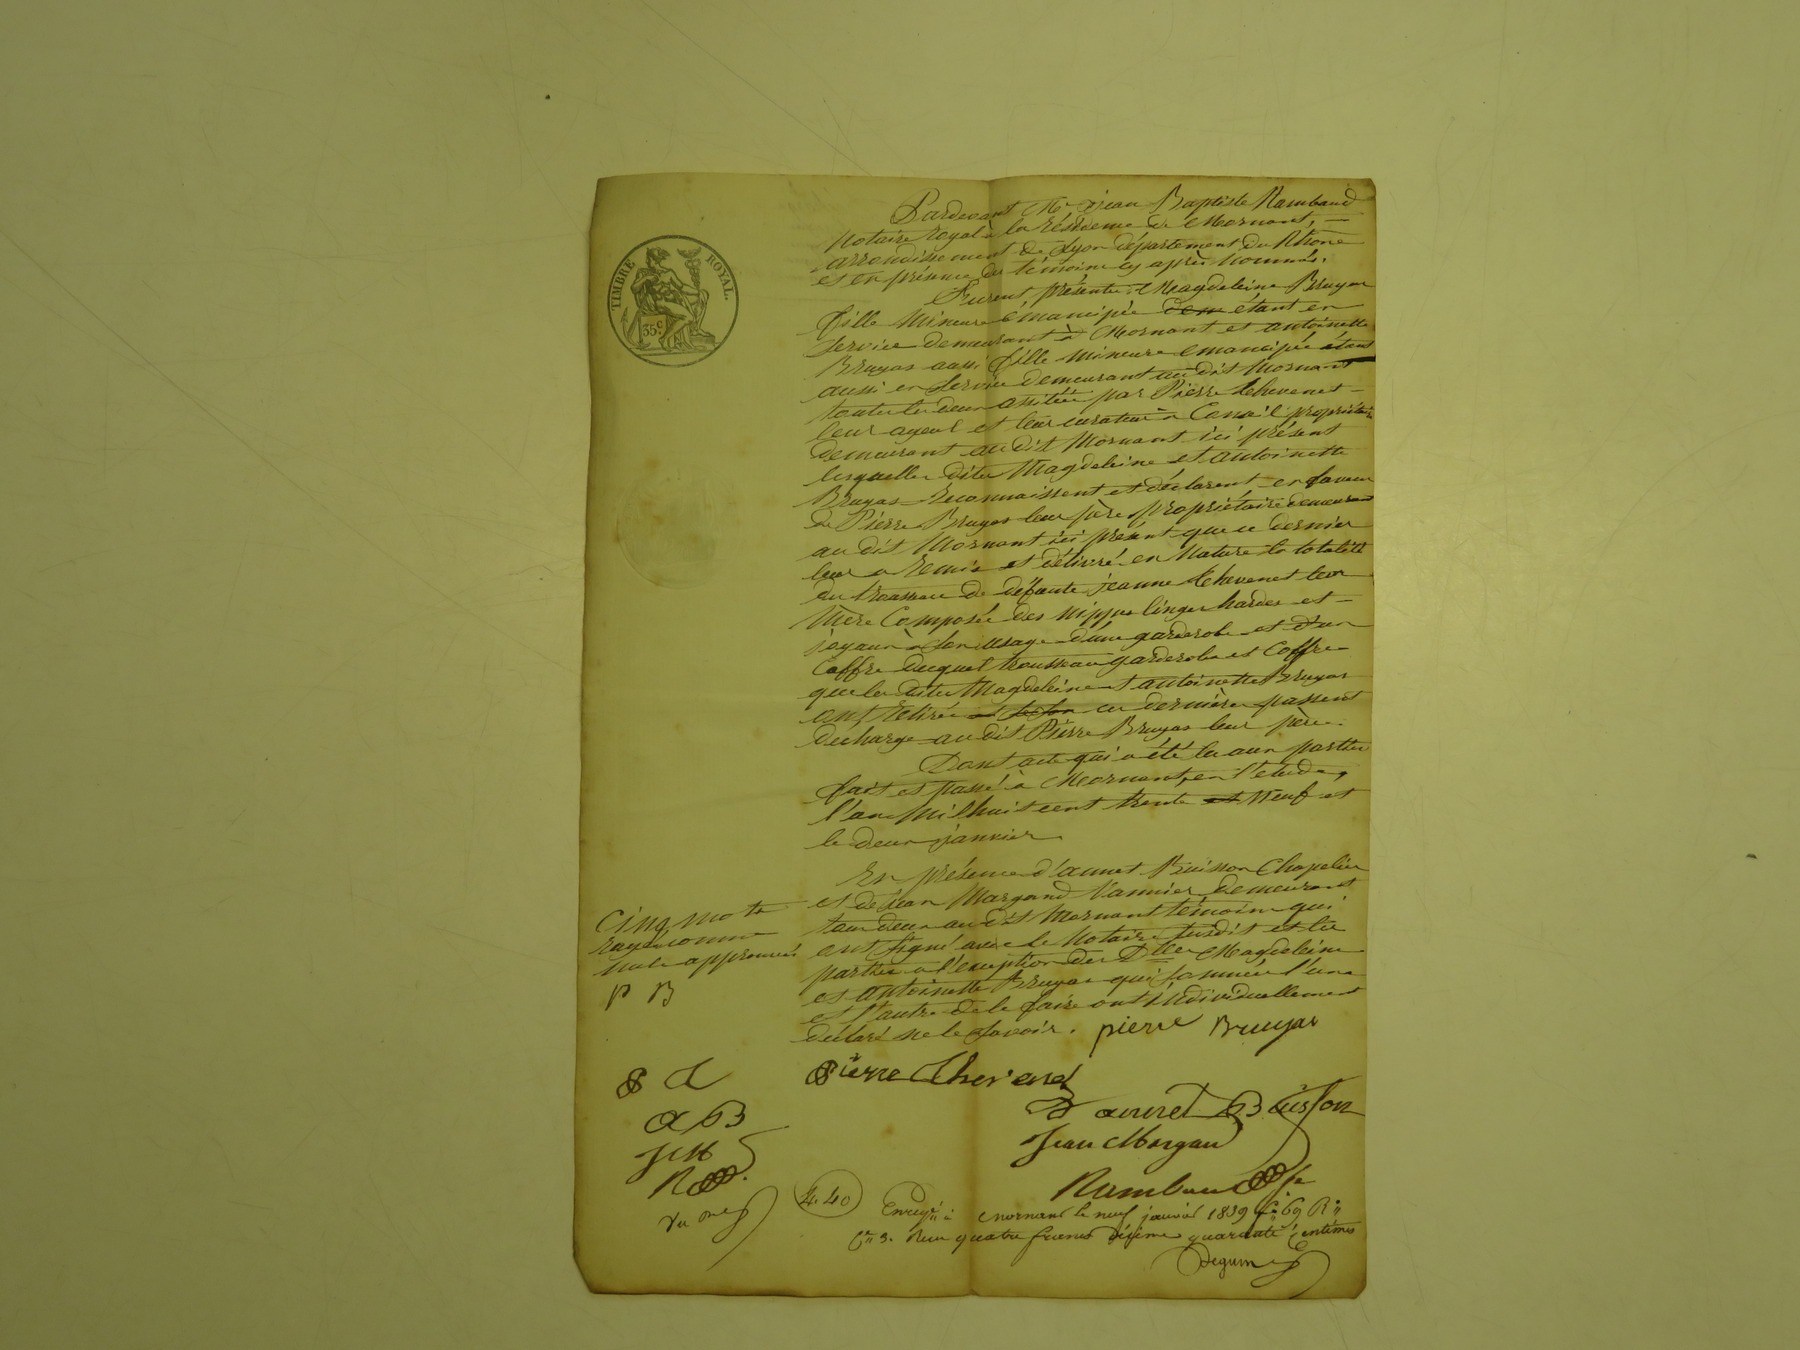 TIMBRE ROYAL.
35c.
Pardevant Me Jean Baptiste Rambaud
Notaire Royal à la résidence de Mornant,
arrondissement de Lyon département du Rhône
et en présence des témoins cy après nommés.
Furent présentes Magdeleine Bruyas
fille mineure émancipée étant en
service demeurant à Mornant et antoinette
Bruyas aussi fille mineure émancipée étant
aussi en service demeurant au dit Mornant
toutes les deux assistées par Pierre Thevenet
leur ayeul et leur curateur à Conseil propriétaire
demeurant au dit Mornant ici présent
lesquelles dites Magdeleine et antoinette
Bruyas reconnaissent et déclarent en faveur
de Pierre Bruyas leur père propriétaire demeurant
au dit Mornant ici présent que ce dernier
leur a remis et délivré en Nature la totalité
du trousseau de défunte jeanne Thevenet leur
Mère Composée des nippes linges hardes et
joyaux à son usage d'une garderobe et d'un
Coffre duquel trousseau garderobe et Coffre
que les dites Magdeleine et antoinette Bruyas
ont retirés ces dernières passent
décharge au dit Pierre Bruyas leur père.
Dont acte qui a été lu aux parties
fait et passé à Mornant, en l'étude,
l'an Mil huit cent trente neuf et
le deux janvier
En présence d'annet Buisson Chapelier
et de jean Margand Vannier demeurant
tous deux au dit Mornant témoins qui
ont signé avec le Notaire susdit et les
parties à l'exception des Dlles Magdeleine
et antoinette Bruyas qui sommées l'une
et l'autre de le faire ont individuellement
déclaré ne le savoir. pierre Bruyas
Cinq mots
rayés comme
nuls approuvés
P B
Pierre Thevenet
annet Buisson
Jean Morgan
Rambaud
A B
J M
4.40
Enregé à Mornant le neuf janvier 1839 fo 69 Ro
Ce 3. Reçu quatre francs décime quarante centimes